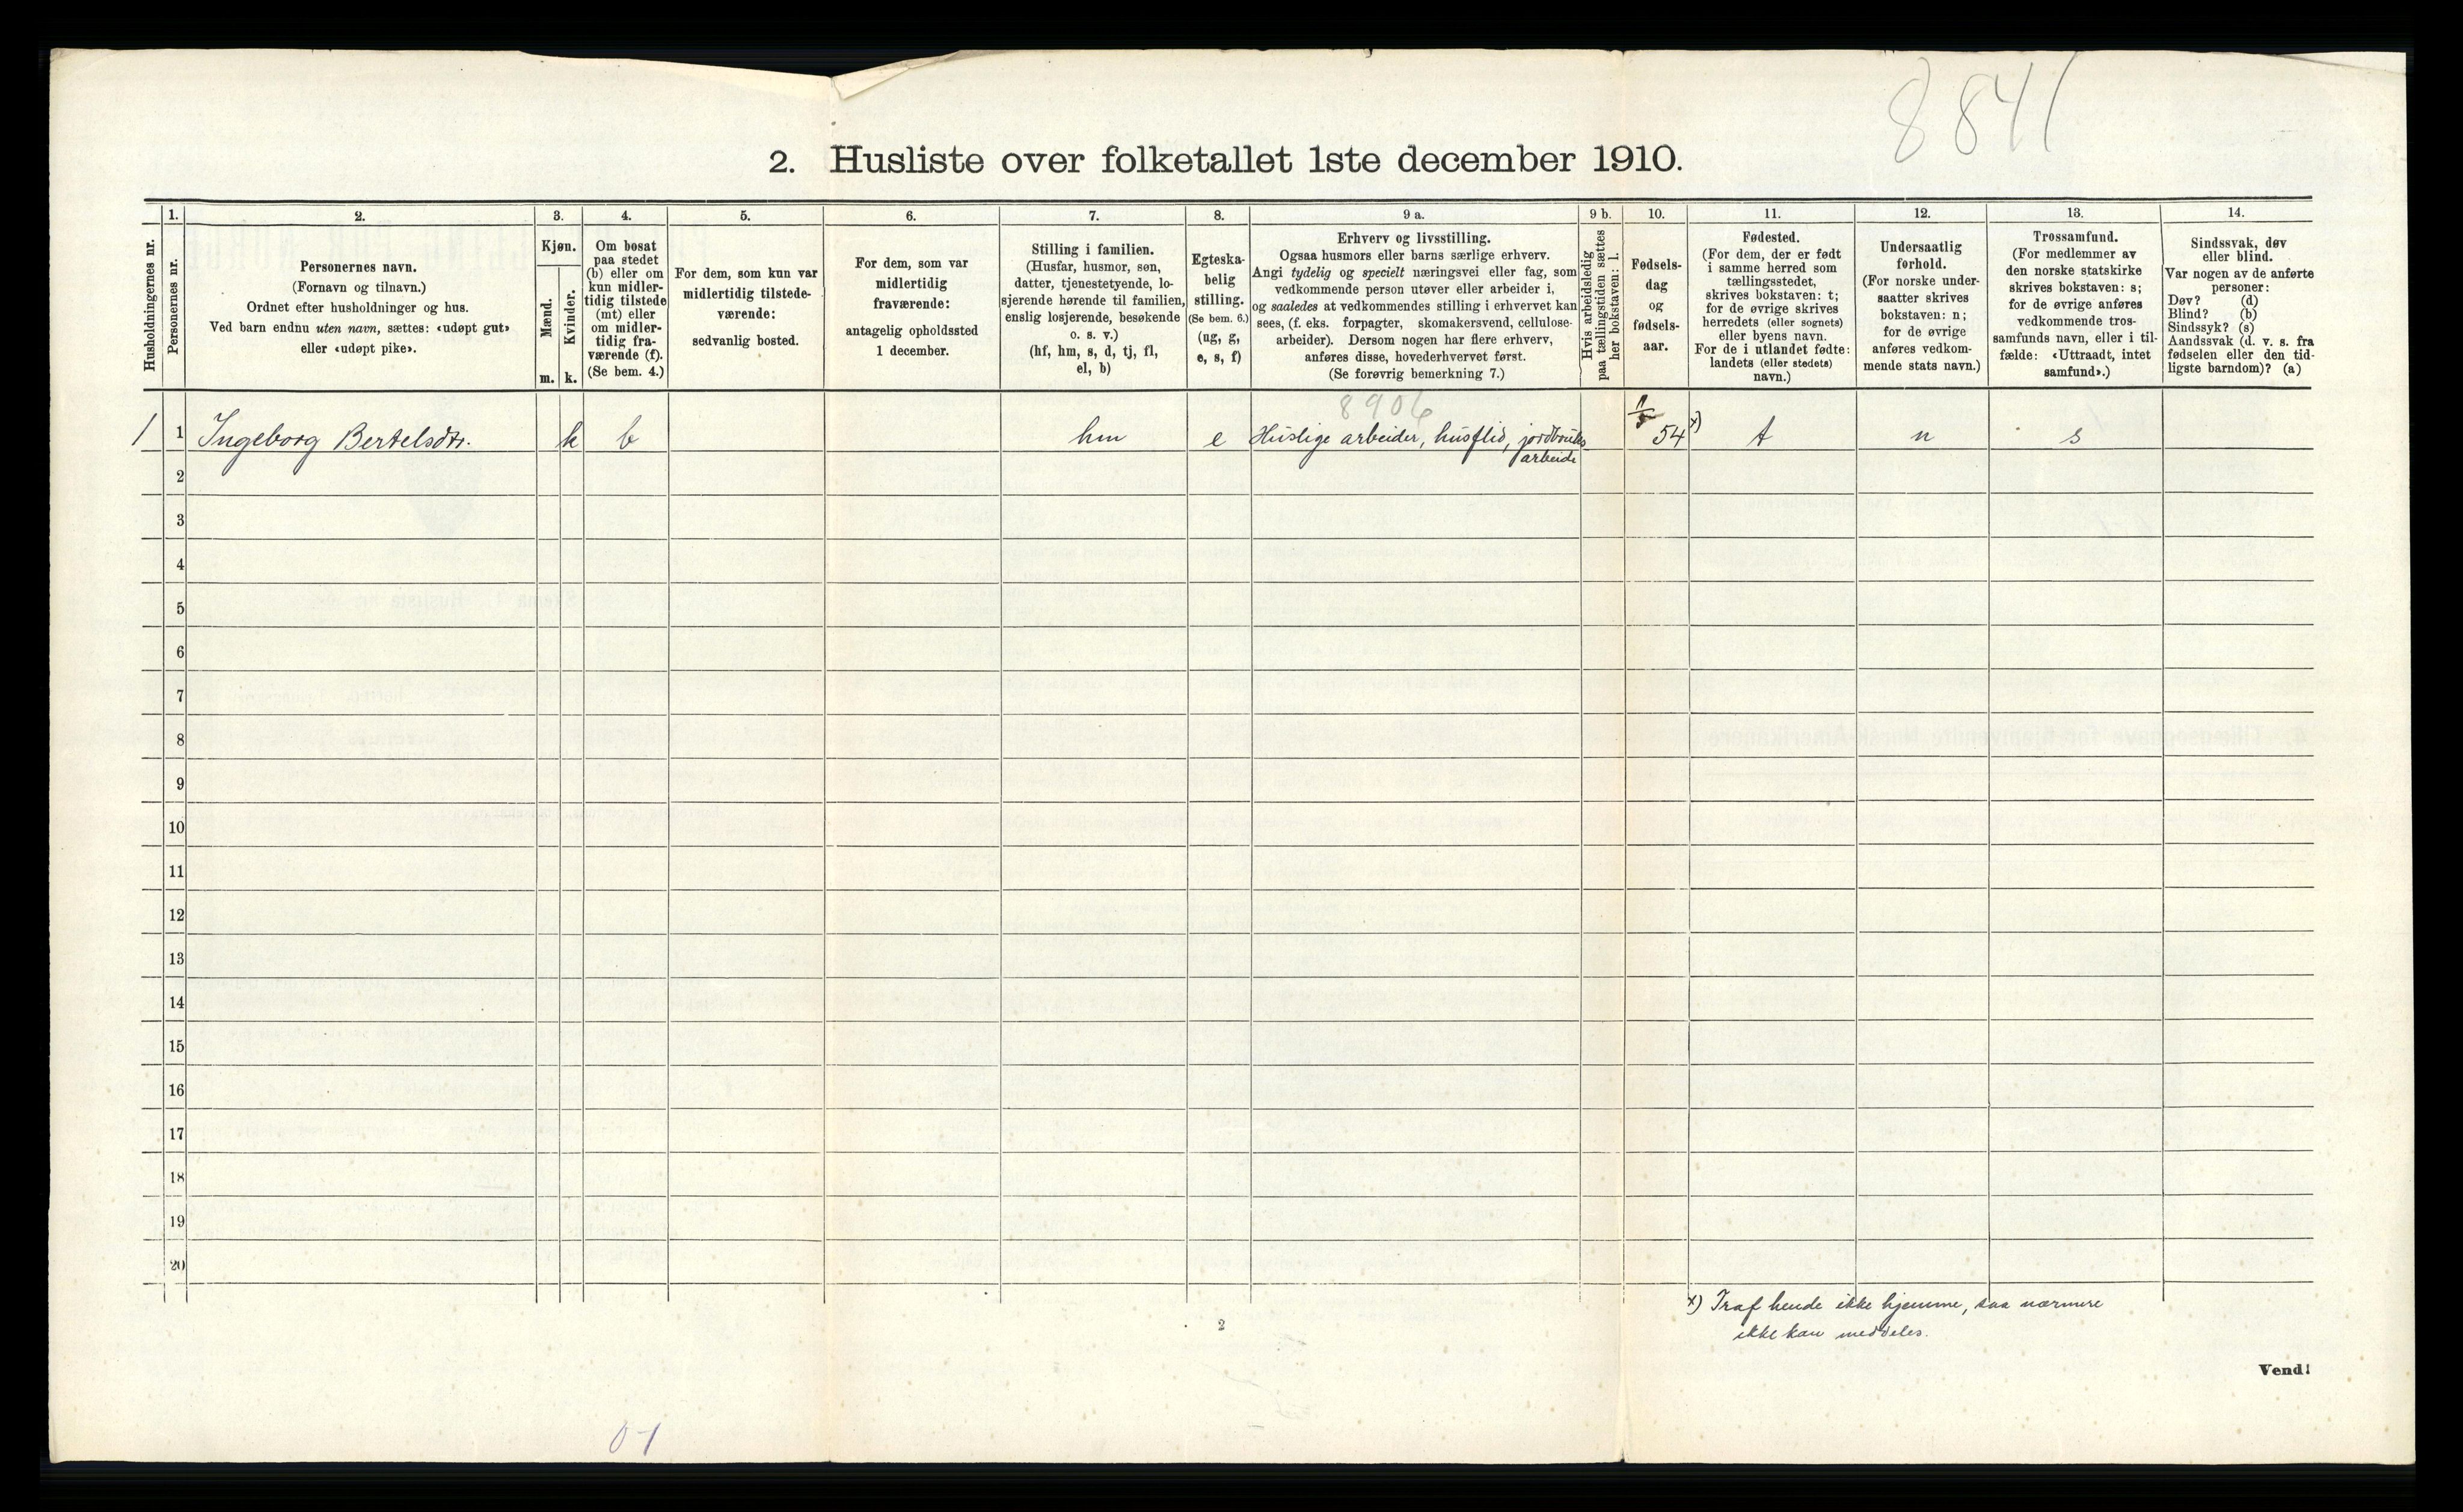 8841
2. Husliste over folketallet 1ste december 1910.
Husholdningernes nr.
1.
Personernes nr.
2.
Personernes navn.
(Fornavn og tilnavn.)
Ordnet efter husholdninger og hus.
Ved barn endnu uten navn, sættes: «udøpt gut»
eller «udøpt pike».
3.
Kjøn.
Mænd.
Kvinder.
m. k.
4.
Om bosat
paa stedet
(b) eller om
kun midler-
tidig tilstede
(mt) eller
om midler-
tidig fra-
værende (f).
(Se bem. 4.)
5.
For dem, som kun var
midlertidig tilstede-
værende:
sedvanlig bosted.
6.
For dem, som var
midlertidig
fraværende:
antagelig opholdssted
1 december.
7.
Stilling i familien.
(Husfar, husmor, søn,
datter, tjenestetyende, lo-
sjerende hørende til familien,
enslig losjerende, besøkende
o. s. v.)
(hf, hm, s, d, tj, fl,
el, b)
8.
Egteska-
belig
stilling.
(Se bem. 6.)
(ug, g,
e, s, f)
9 a.
Erhverv og livsstilling.
Ogsaa husmors eller barns særlige erhverv.
Angi tydelig og specielt næringsvei eller fag, som
vedkommende person utøver eller arbeider i,
og saaledes at vedkommendes stilling i erhvervet kan
sees, (f. eks. forpagter, skomakersvend, cellulose-
arbeider). Dersom nogen har flere erhverv,
anføres disse, hovederhvervet først.
(Se forøvrig bemerkning 7.)
9 b.
Hvis arbeidsledig
paa tællingstiden sættes
her bokstaven: l.
10.
Fødsels-
dag
og
fødsels-
aar.
11.
Fødested.
(For dem, der er født
i samme herred som
tællingsstedet,
skrives bokstaven: t;
for de øvrige skrives
herredets (eller sognets)
eller byens navn.
For de i utlandet fødte:
landets (eller stedets)
navn.)
12.
Undersaatlig
forhold.
(For norske under-
saatter skrives
bokstaven: n;
for de øvrige
anføres vedkom-
mende stats navn.)
13.
Trossamfund.
(For medlemmer av
den norske statskirke
skrives bokstaven: s;
for de øvrige anføres
vedkommende tros-
samfunds navn, eller i til-
fælde: «Uttraadt, intet
samfund».)
14.
Sindssvak, døv
eller blind.
Var nogen av de anførte
personer:
Døv? (d)
Blind? (b)
Sindssyk? (s)
Aandssvak (d. v. s. fra
fødselen eller den tid-
ligste barndom)? (a)
8906
1 1 Ingeborg Bertelsdtr. k b hm e Huslige arbeider, husflid, jordbruks 54 x) t n s
arbeide
2
3
4
5
6
7
8
9
10
11
12
13
14
15
16
17
18
19
20
x) Traf hende ikke hjemme, saa nærmere
ikke kan meddeles.
2
Vend!
0-1